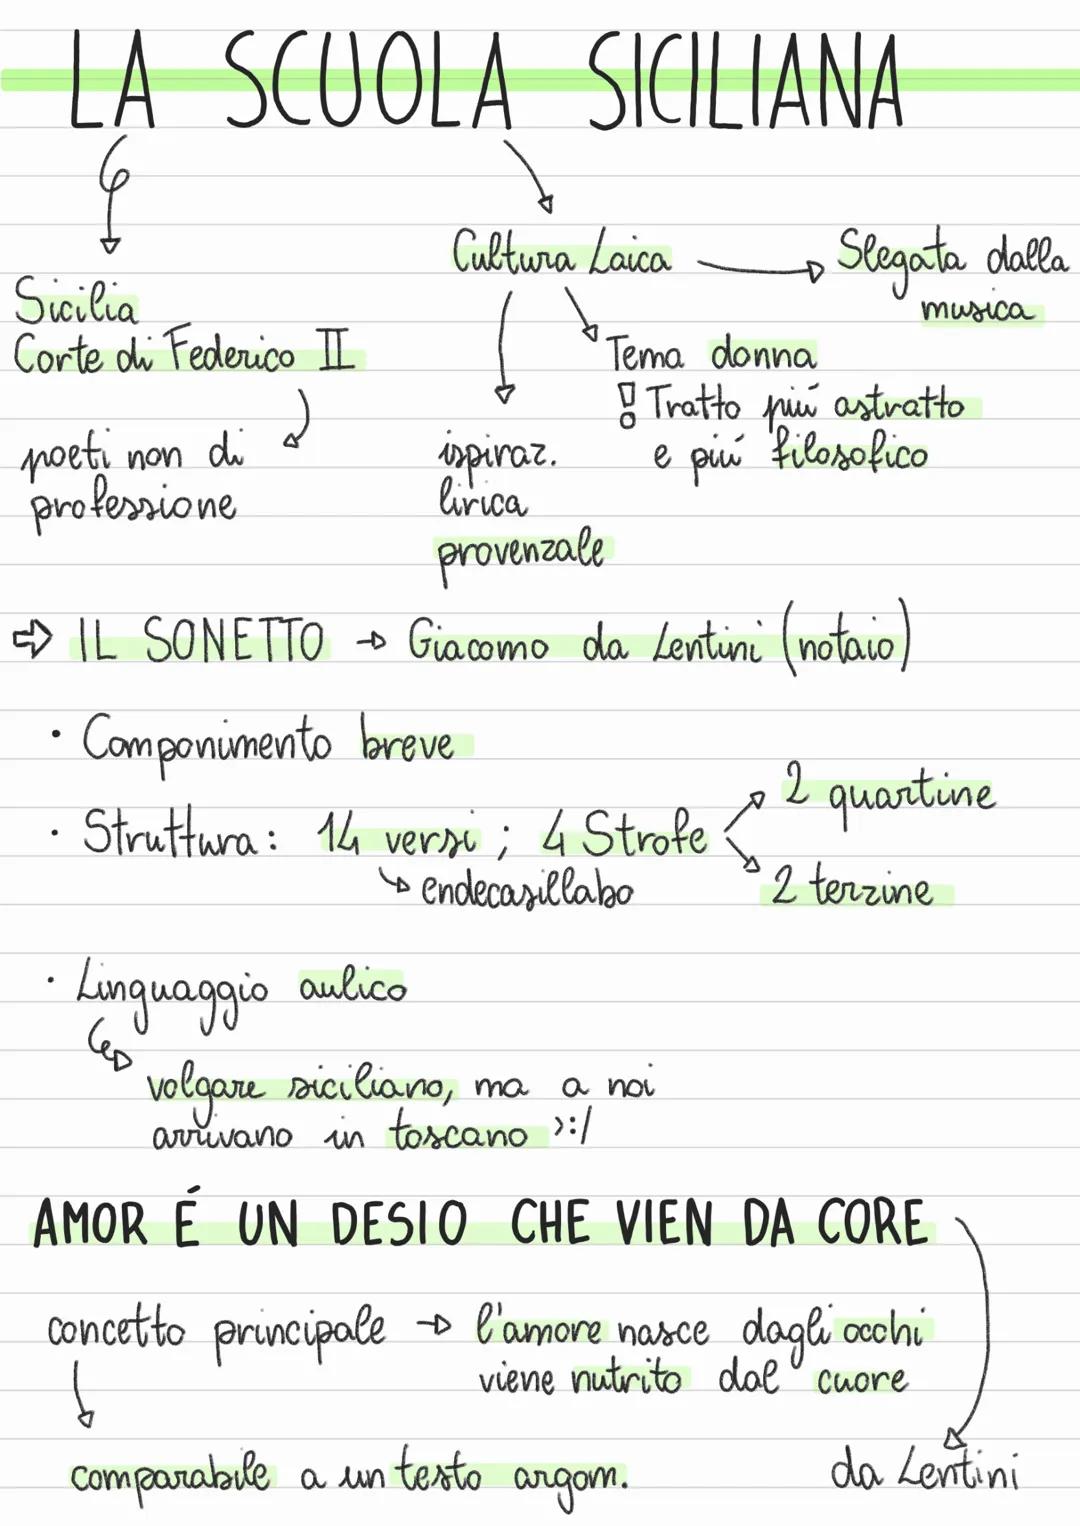 LA SCUOLA SICILIANA
Sicilia
Corte di Federico II
poeti non di
professione
Cultura Laica
Slegata dalla
musica
Tema donna
! Tratto piú astratto
e piú filosofico
ispiraz.
lirica
provenzale
⇨ IL SONETTO → Giacomo da Lentini (notaio)
· Componimento breve
· Struttura: 14 versi ; 4 Strofe
2 quartine
2 terzine
endecasillabo
· Linguaggio aulico
volgare siciliano, ma a noi
arrivano in toscano >:/
AMOR É UN DESIO CHE VIEN DA CORE
concetto principale → l'amore nasce dagli occhi
viene nutrito dal cuore
comparabile a un testo argom.
da Lentini